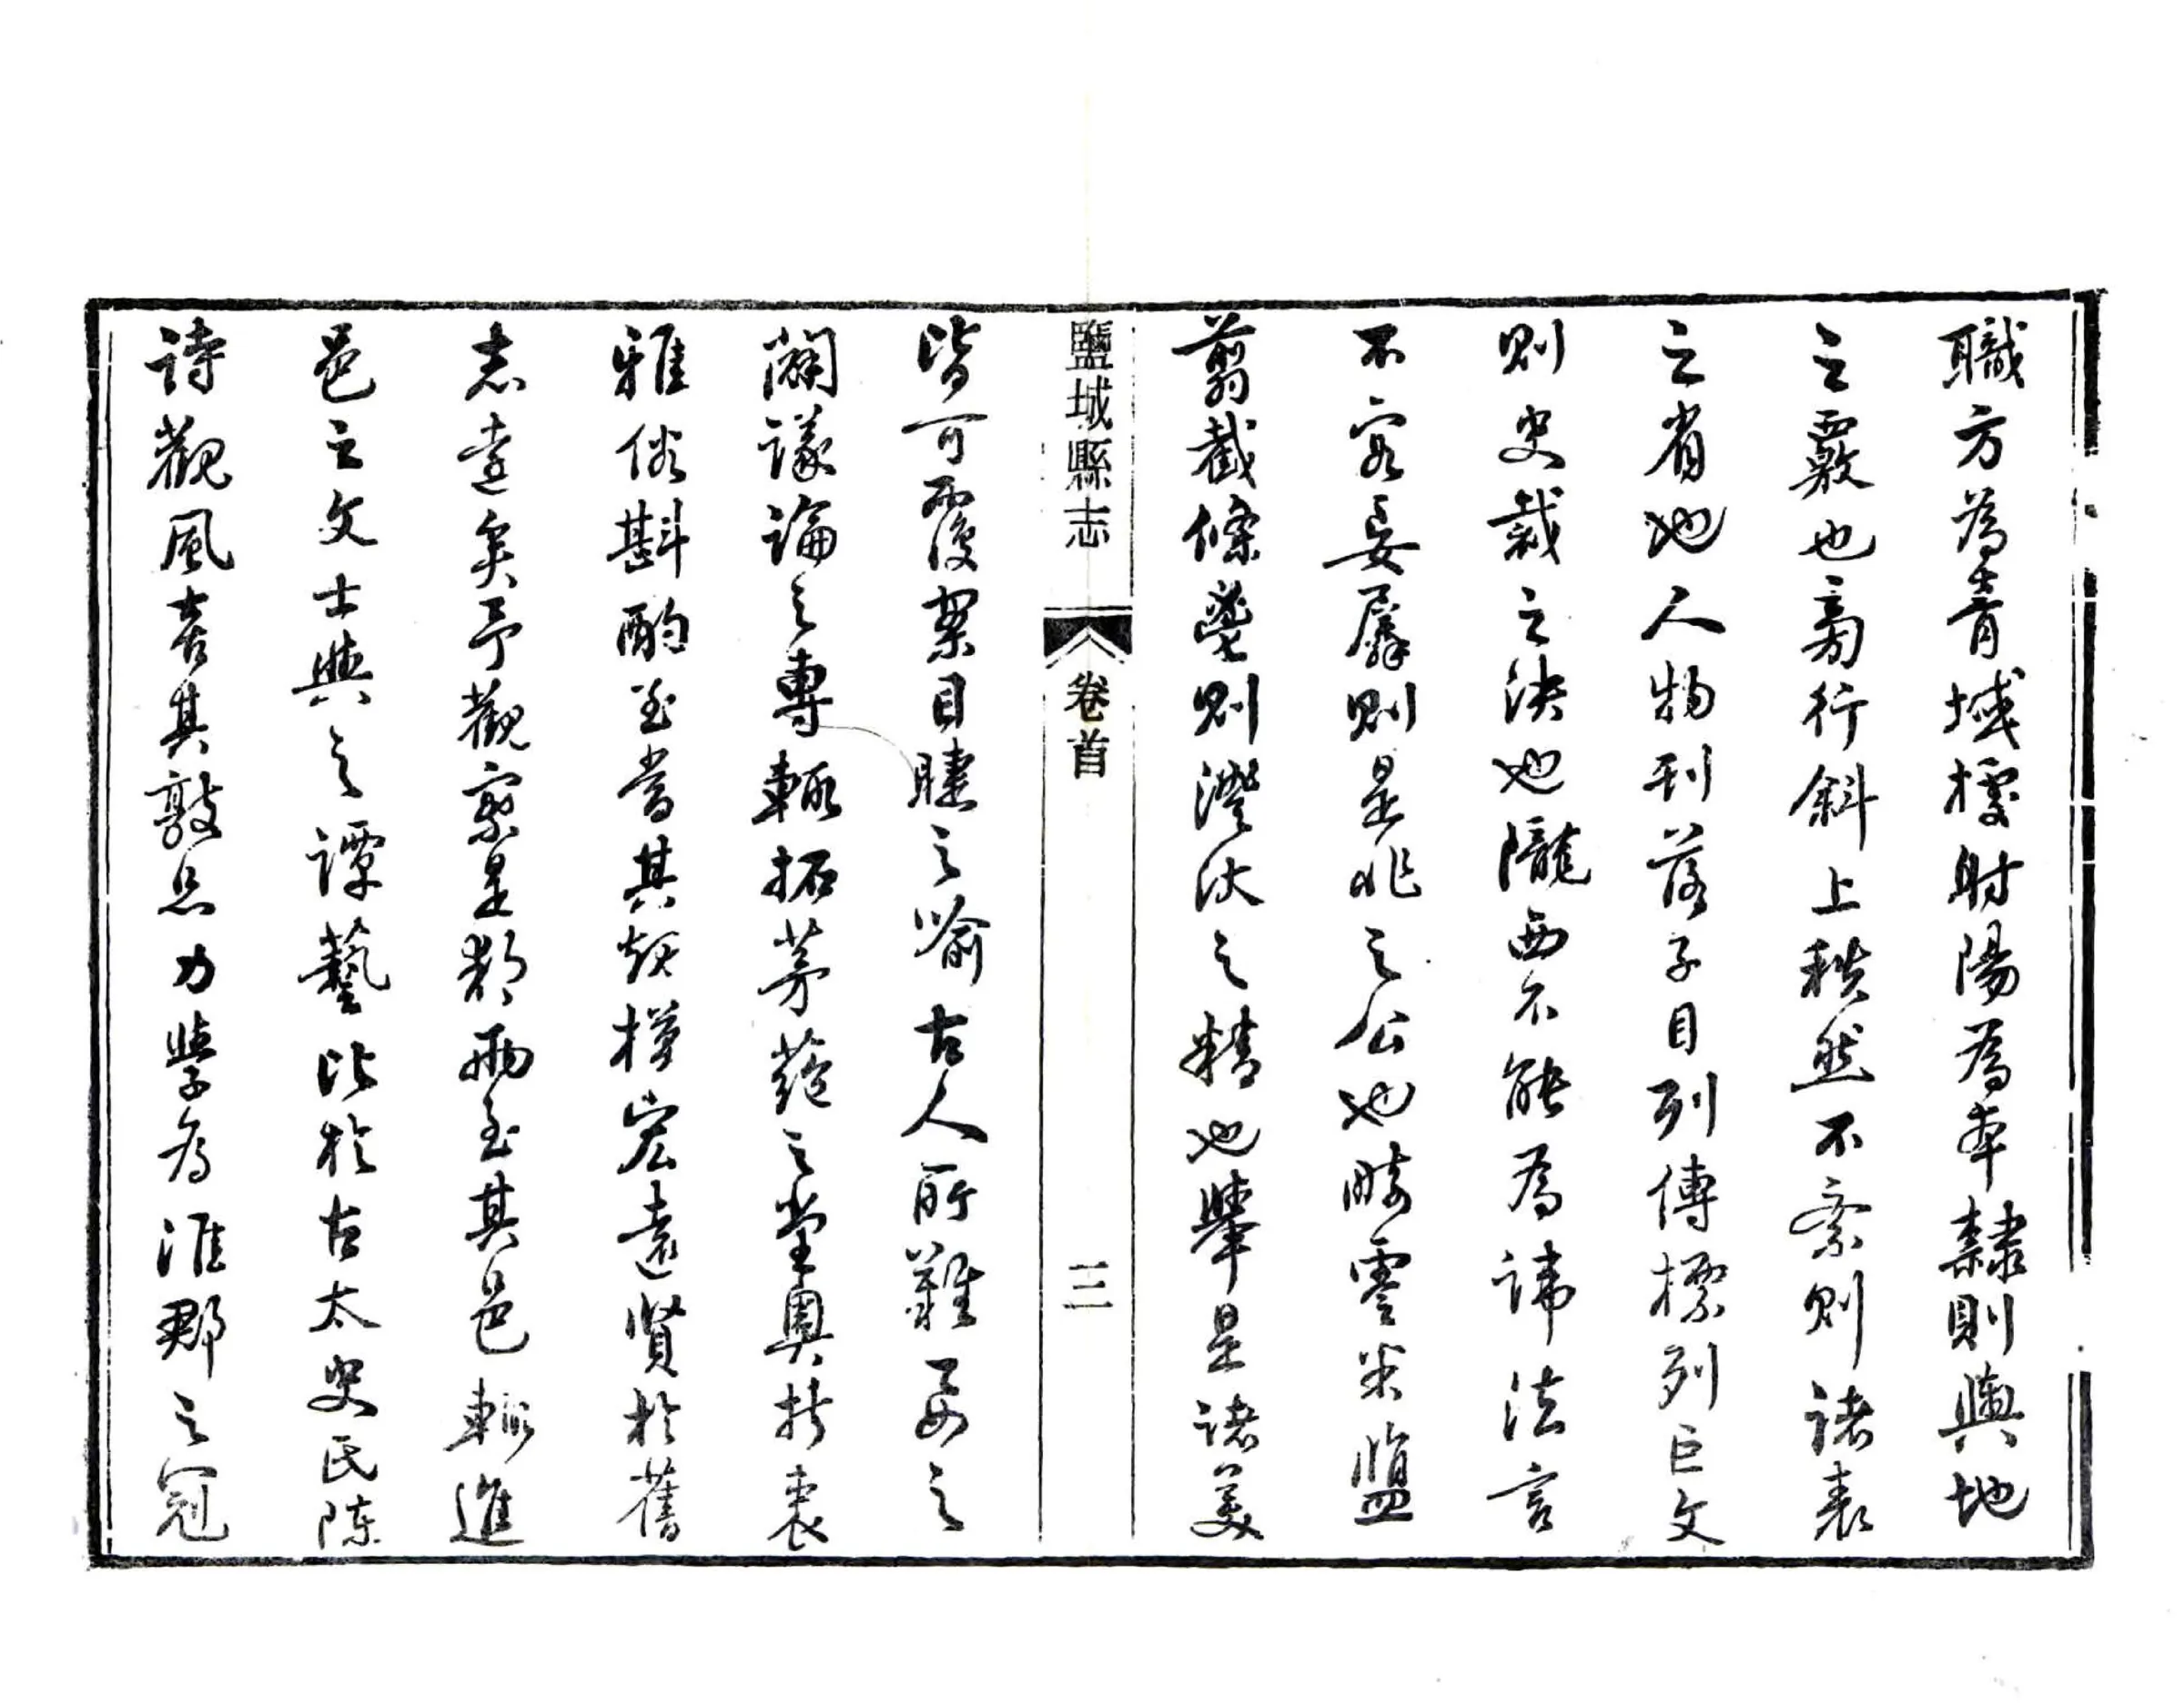 職方為青域據射陽為本隸則輿地
之覈也旁行斜上秩然不紊則諸表
之省也人物刊落子目列傳標列巨文
則史裁之決也隴西不能為諱法言
不容妄孱則是非之公也疇零米鹽
翦截條鬯則澄汰之精也舉是諸美
鹽城縣志 卷首 三
皆可覆案目睫之喻古人所難要之
闢議論之專輒拓茅蕝之堂奧折衷
雅俗斟酌至當其規橅宏遠賢於舊
志遠矣予觀察是邦兩至其邑輒進
邑之文士與之譚藝比於古太史氏陳
詩觀風喜其敦品力學為淮郡之冠